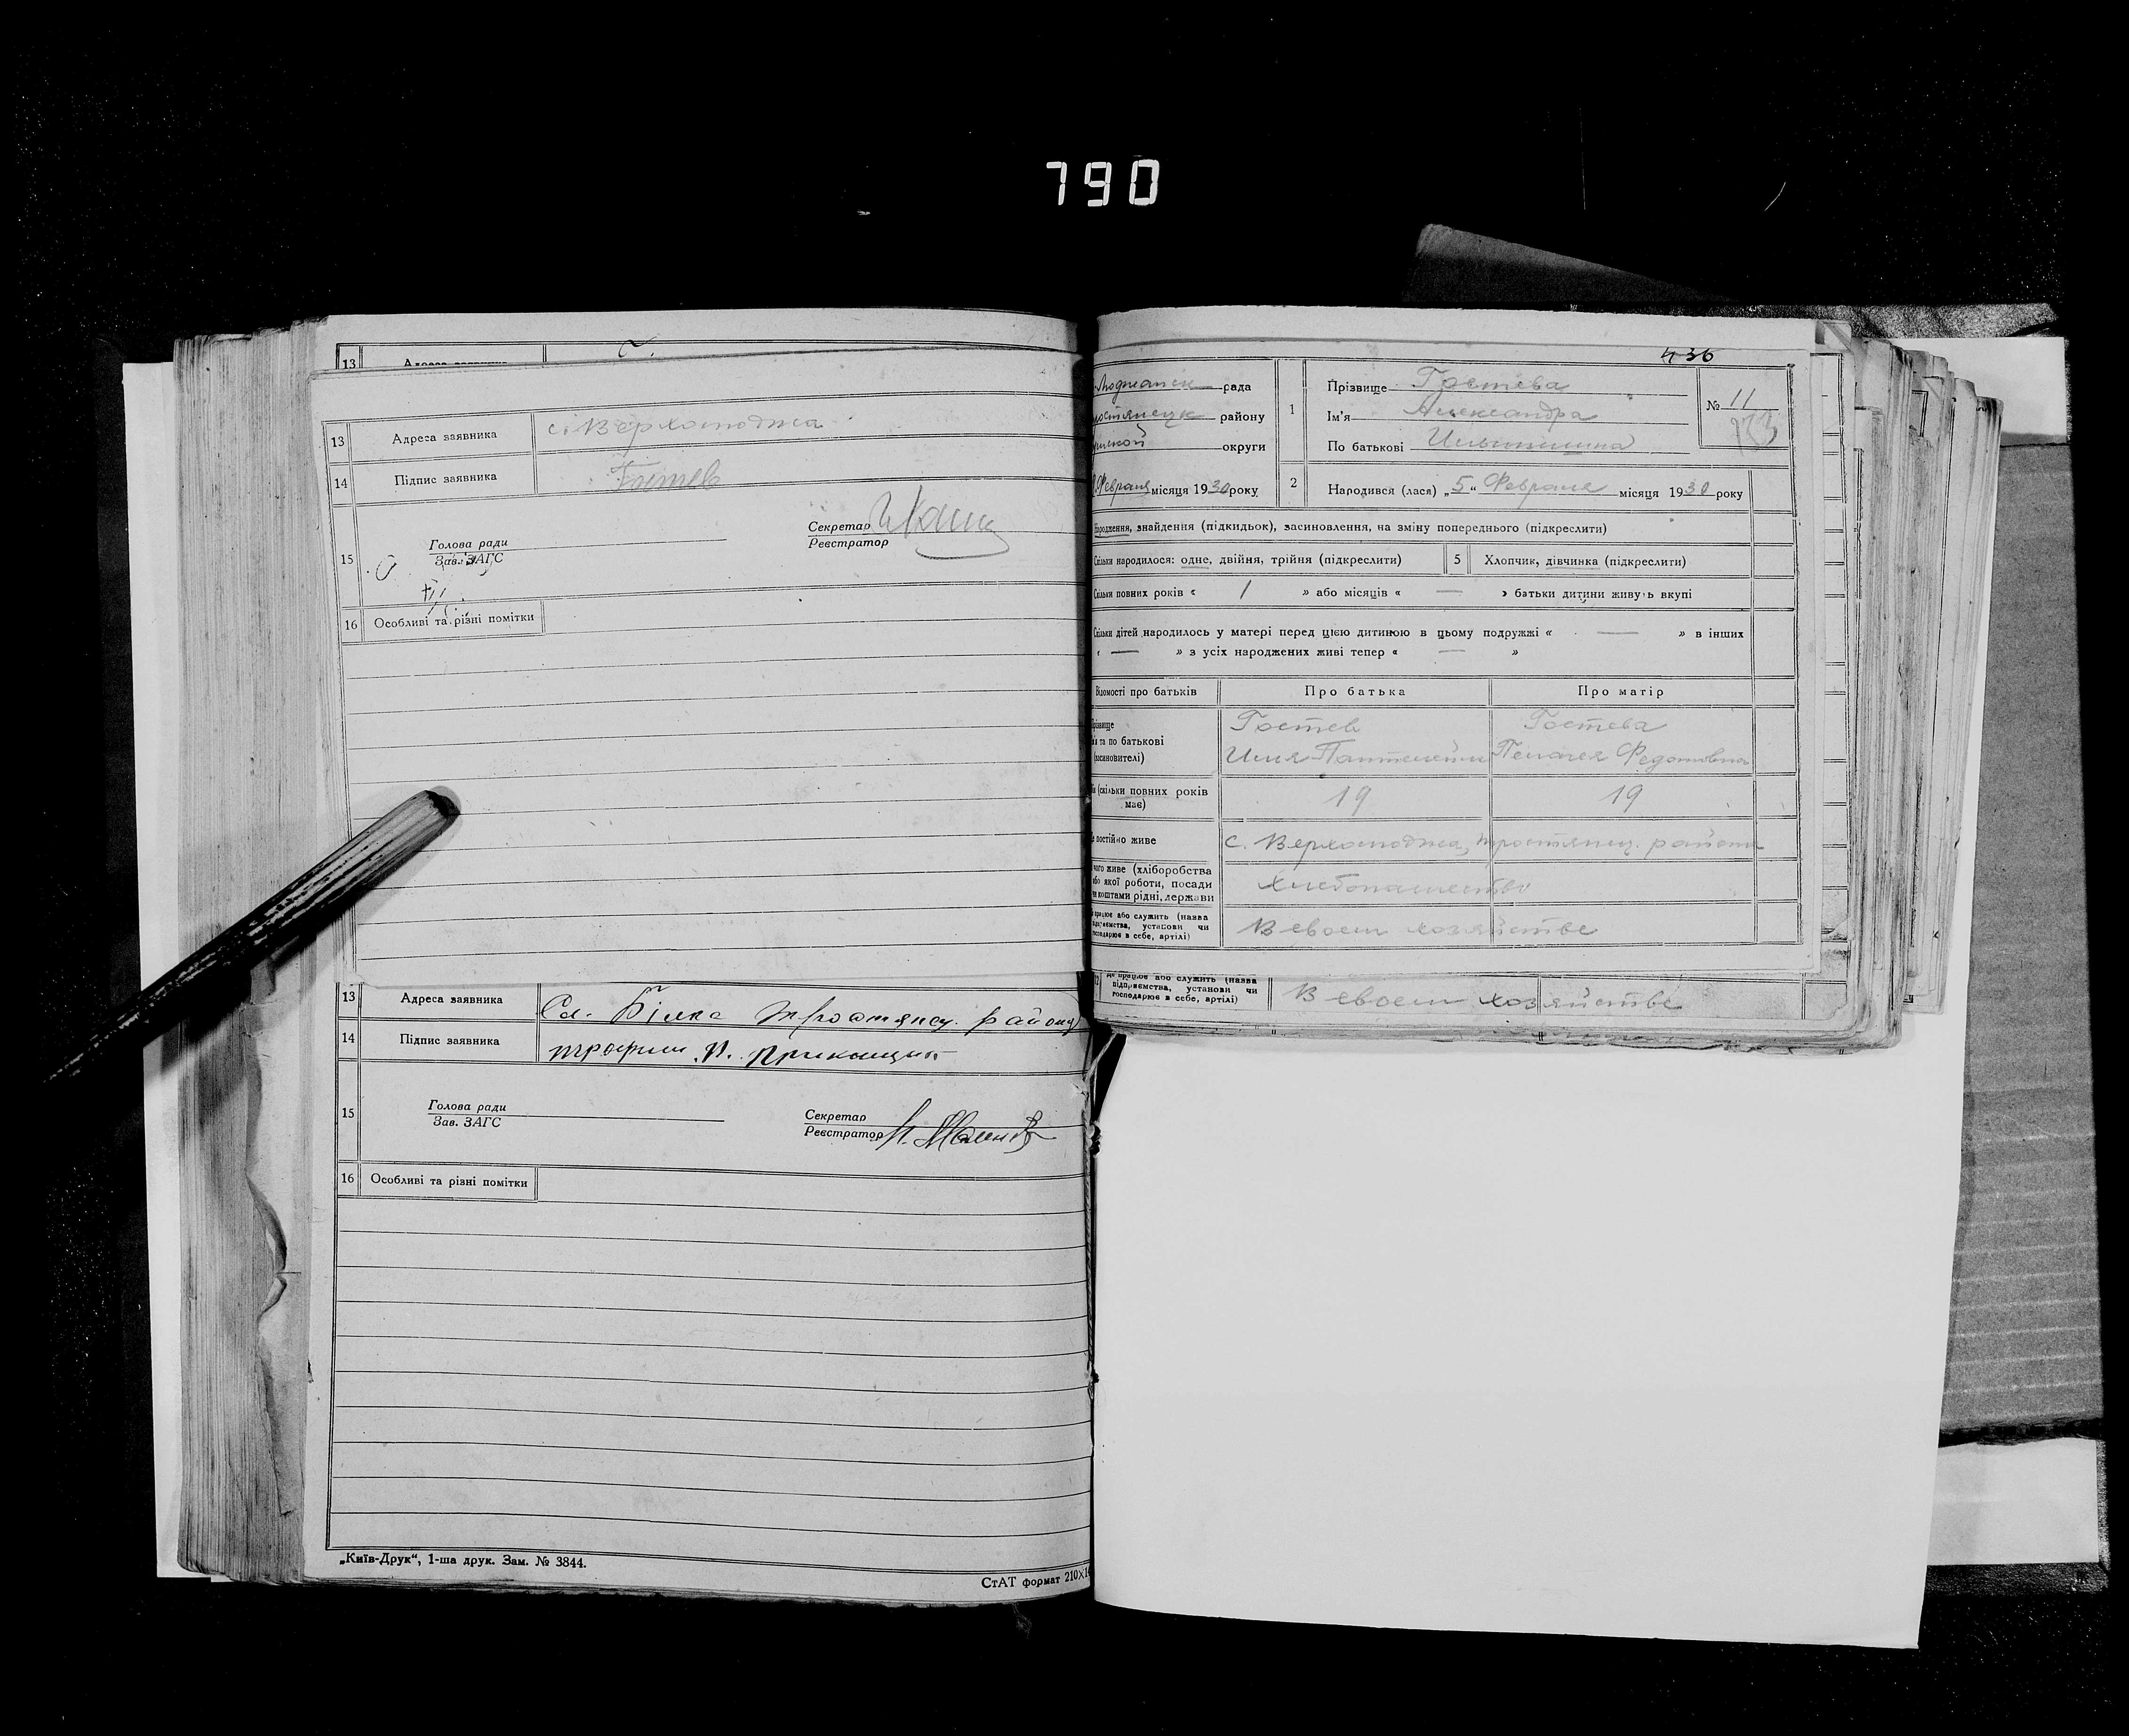 790
13 Адреса заявника
13 Адреса заявника с. Верхолюджа
14 Підпис заявника Гостев
15 Голова ради
Зав. ЗАГС
Секретар
Реєстратор
16 Особливі та різні помітки
13 Адреса заявника Сл. Білка Тростянец. району
14 Підпис заявника
15 Голова ради
Зав. ЗАГС
Секретар
Реєстратор
16 Особливі та різні помітки
„Київ-Друк“, 1-ша друк. Зам. № 3844.
СтАТ формат 210×1
436
рада
району
округи
Февраля місяця 1930 року
1 Прізвище Гостева
Ім'я Александра
По батькові
№ 11
2 Народився (лася) „5“ Февраля місяця 1930 року
народження, знайдення (підкидьок), засиновлення, на зміну попереднього (підкреслити)
Скільки народилося: одне, двійня, трійня (підкреслити)
5 Хлопчик, дівчинка (підкреслити)
Скільки повних років « 1 » або місяців « — » батьки дитини живуть вкупі
Скільки дітей народилось у матері перед цією дитиною в цьому подружжі « — » в інших
« — » з усіх народжених живі тепер « — »
Відомості про батьків Про батька Про матір
Прізвище Гостев Гостева
ім'я та по батькові
(засновителі) Илия Пантелейм Пелагея Федотовна
(скільки повних років має) 19 19
постійно живе с. Верхолюджа, тростянец. района
чого живе (хліборобства
або якої роботи, посади
чи коштами рідні, держави хлебопашество
працює або служить (назва
підприємства, установи чи
господарює в себе, артілі) В своем хозяйстве
де працює або служить (назва
підприємства, установи чи
господарює в себе, артілі) В своем хозяйстве